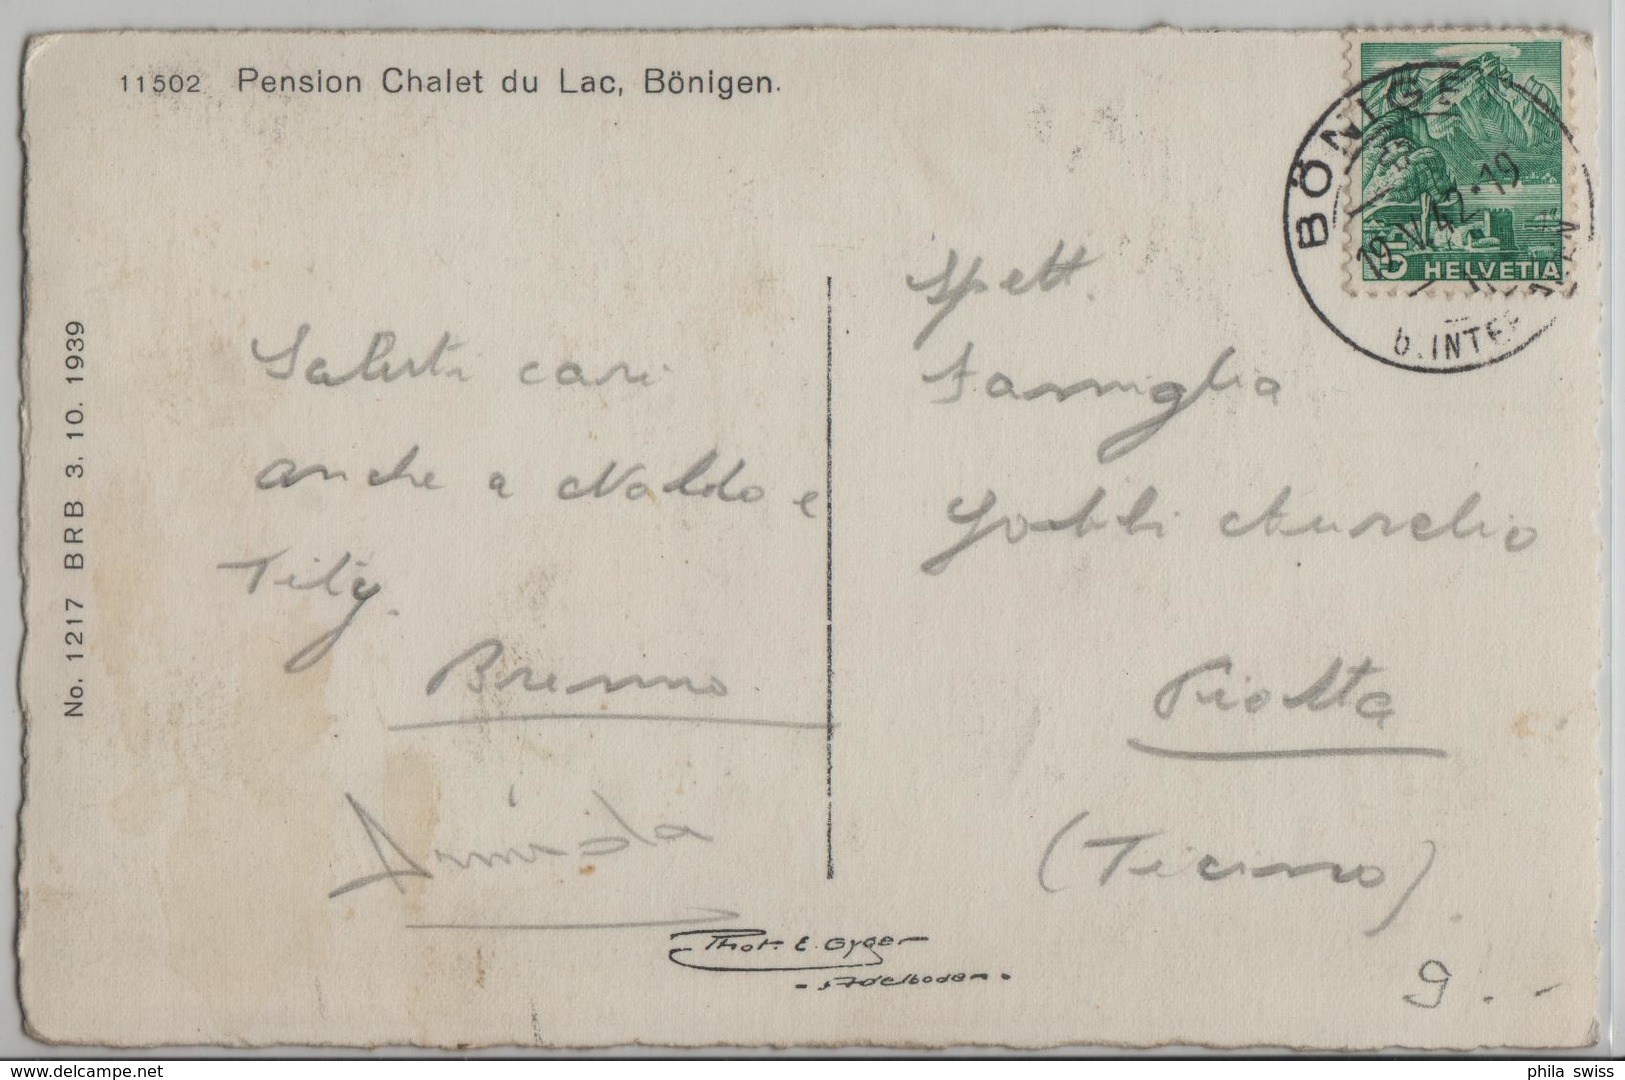 11502 Pension Chalet du Lac, Bönigen.
No. 1217 BRB 3. 10. 1939
Saluti cari
anche a Naldo e
Tily.
Brenno
Armida
Spett.
Famiglia
Gobbi Aurelio
Piotta
(Ticino)
BÖNIGEN
19.V.42.19
b. INTERLAKEN
5 HELVETIA
Phot. E. Gyger
Adelboden
9.-
delcampe.net
phila swiss